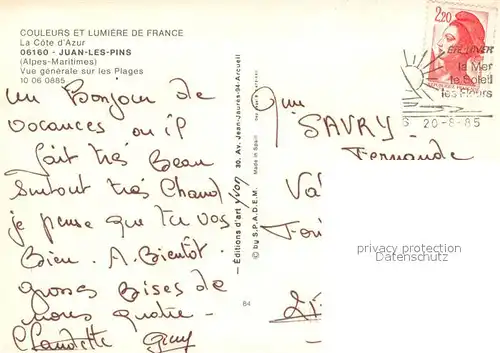 COULEURS ET LUMIÈRE DE FRANCE
La Côte d'Azur
06160 - JUAN-LES-PINS
(Alpes-Maritimes)
Vue générale sur les Plages
10 06 0885
un Bonjour de
vacances ou il
fait très Beau
surtout très Chaud
je pense que tu vas
Bien. A. Bientôt.
grosses Bises de
nous quatre -
Claudette Guy
— Editions d'art yvon 30, Av. Jean-Jaurès-94-Arcueil
© by S.P.A.D.E.M. Made in Spain
84
2,20
ETE HIVER
la Mer
le Soleil
les Fleurs
20-8-85
SAVRY
Fernande
privacy protection
Datenschutz